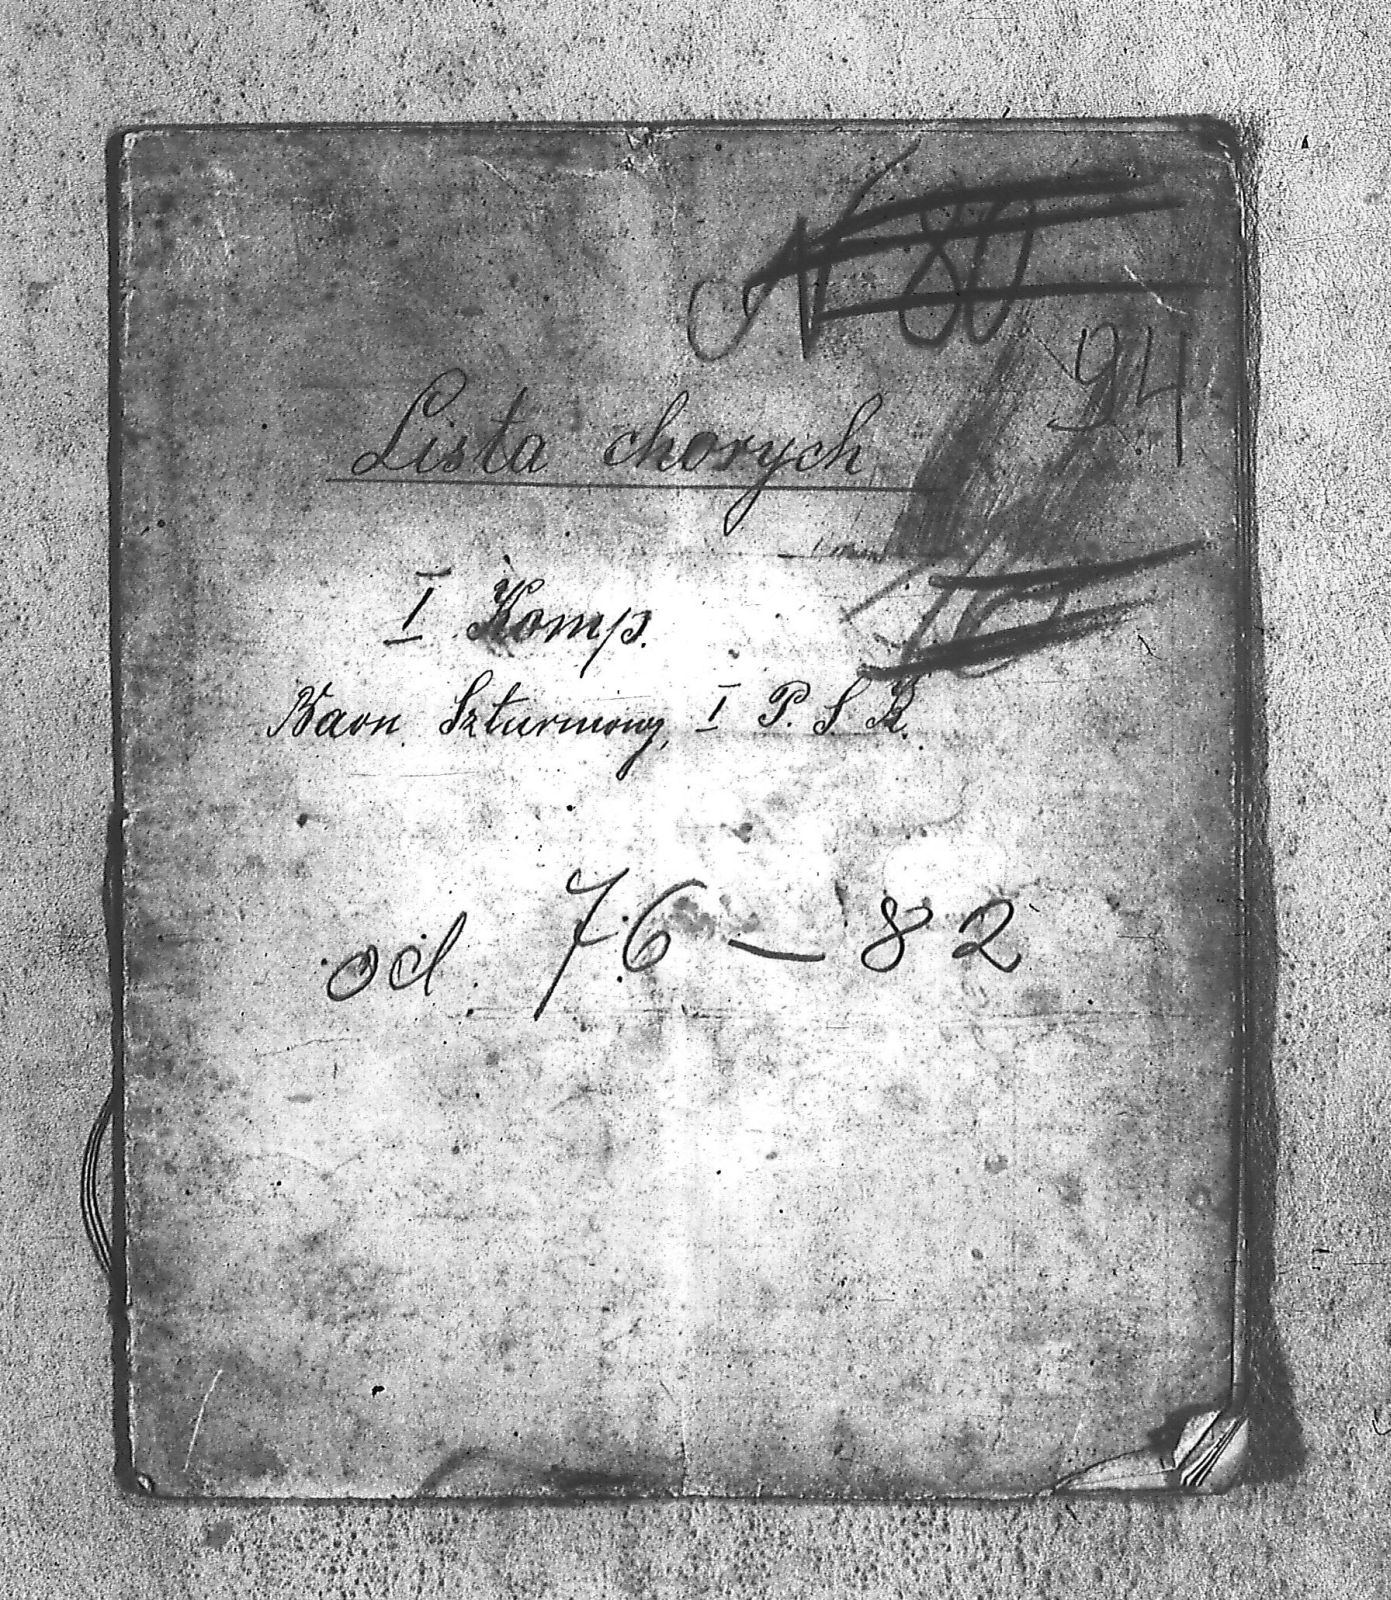 Nr 80
94
Lista chorych
I Komp.
Baon Szturmowy, I P. S. K.
od 76 – 82